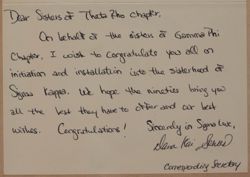 Dear Sisters of Theta Rho chapter,
On behalf of the sisters of Gamma Phi
Chapter, I wish to congratulate you all on
initiation and installation into the sisterhood of
Sigma Kappa. We hope the nineties bring you
all the best they have to offer and our best
wishes. Congratulations!
Sincerely in Sigma Love,
Corresponding Secretary